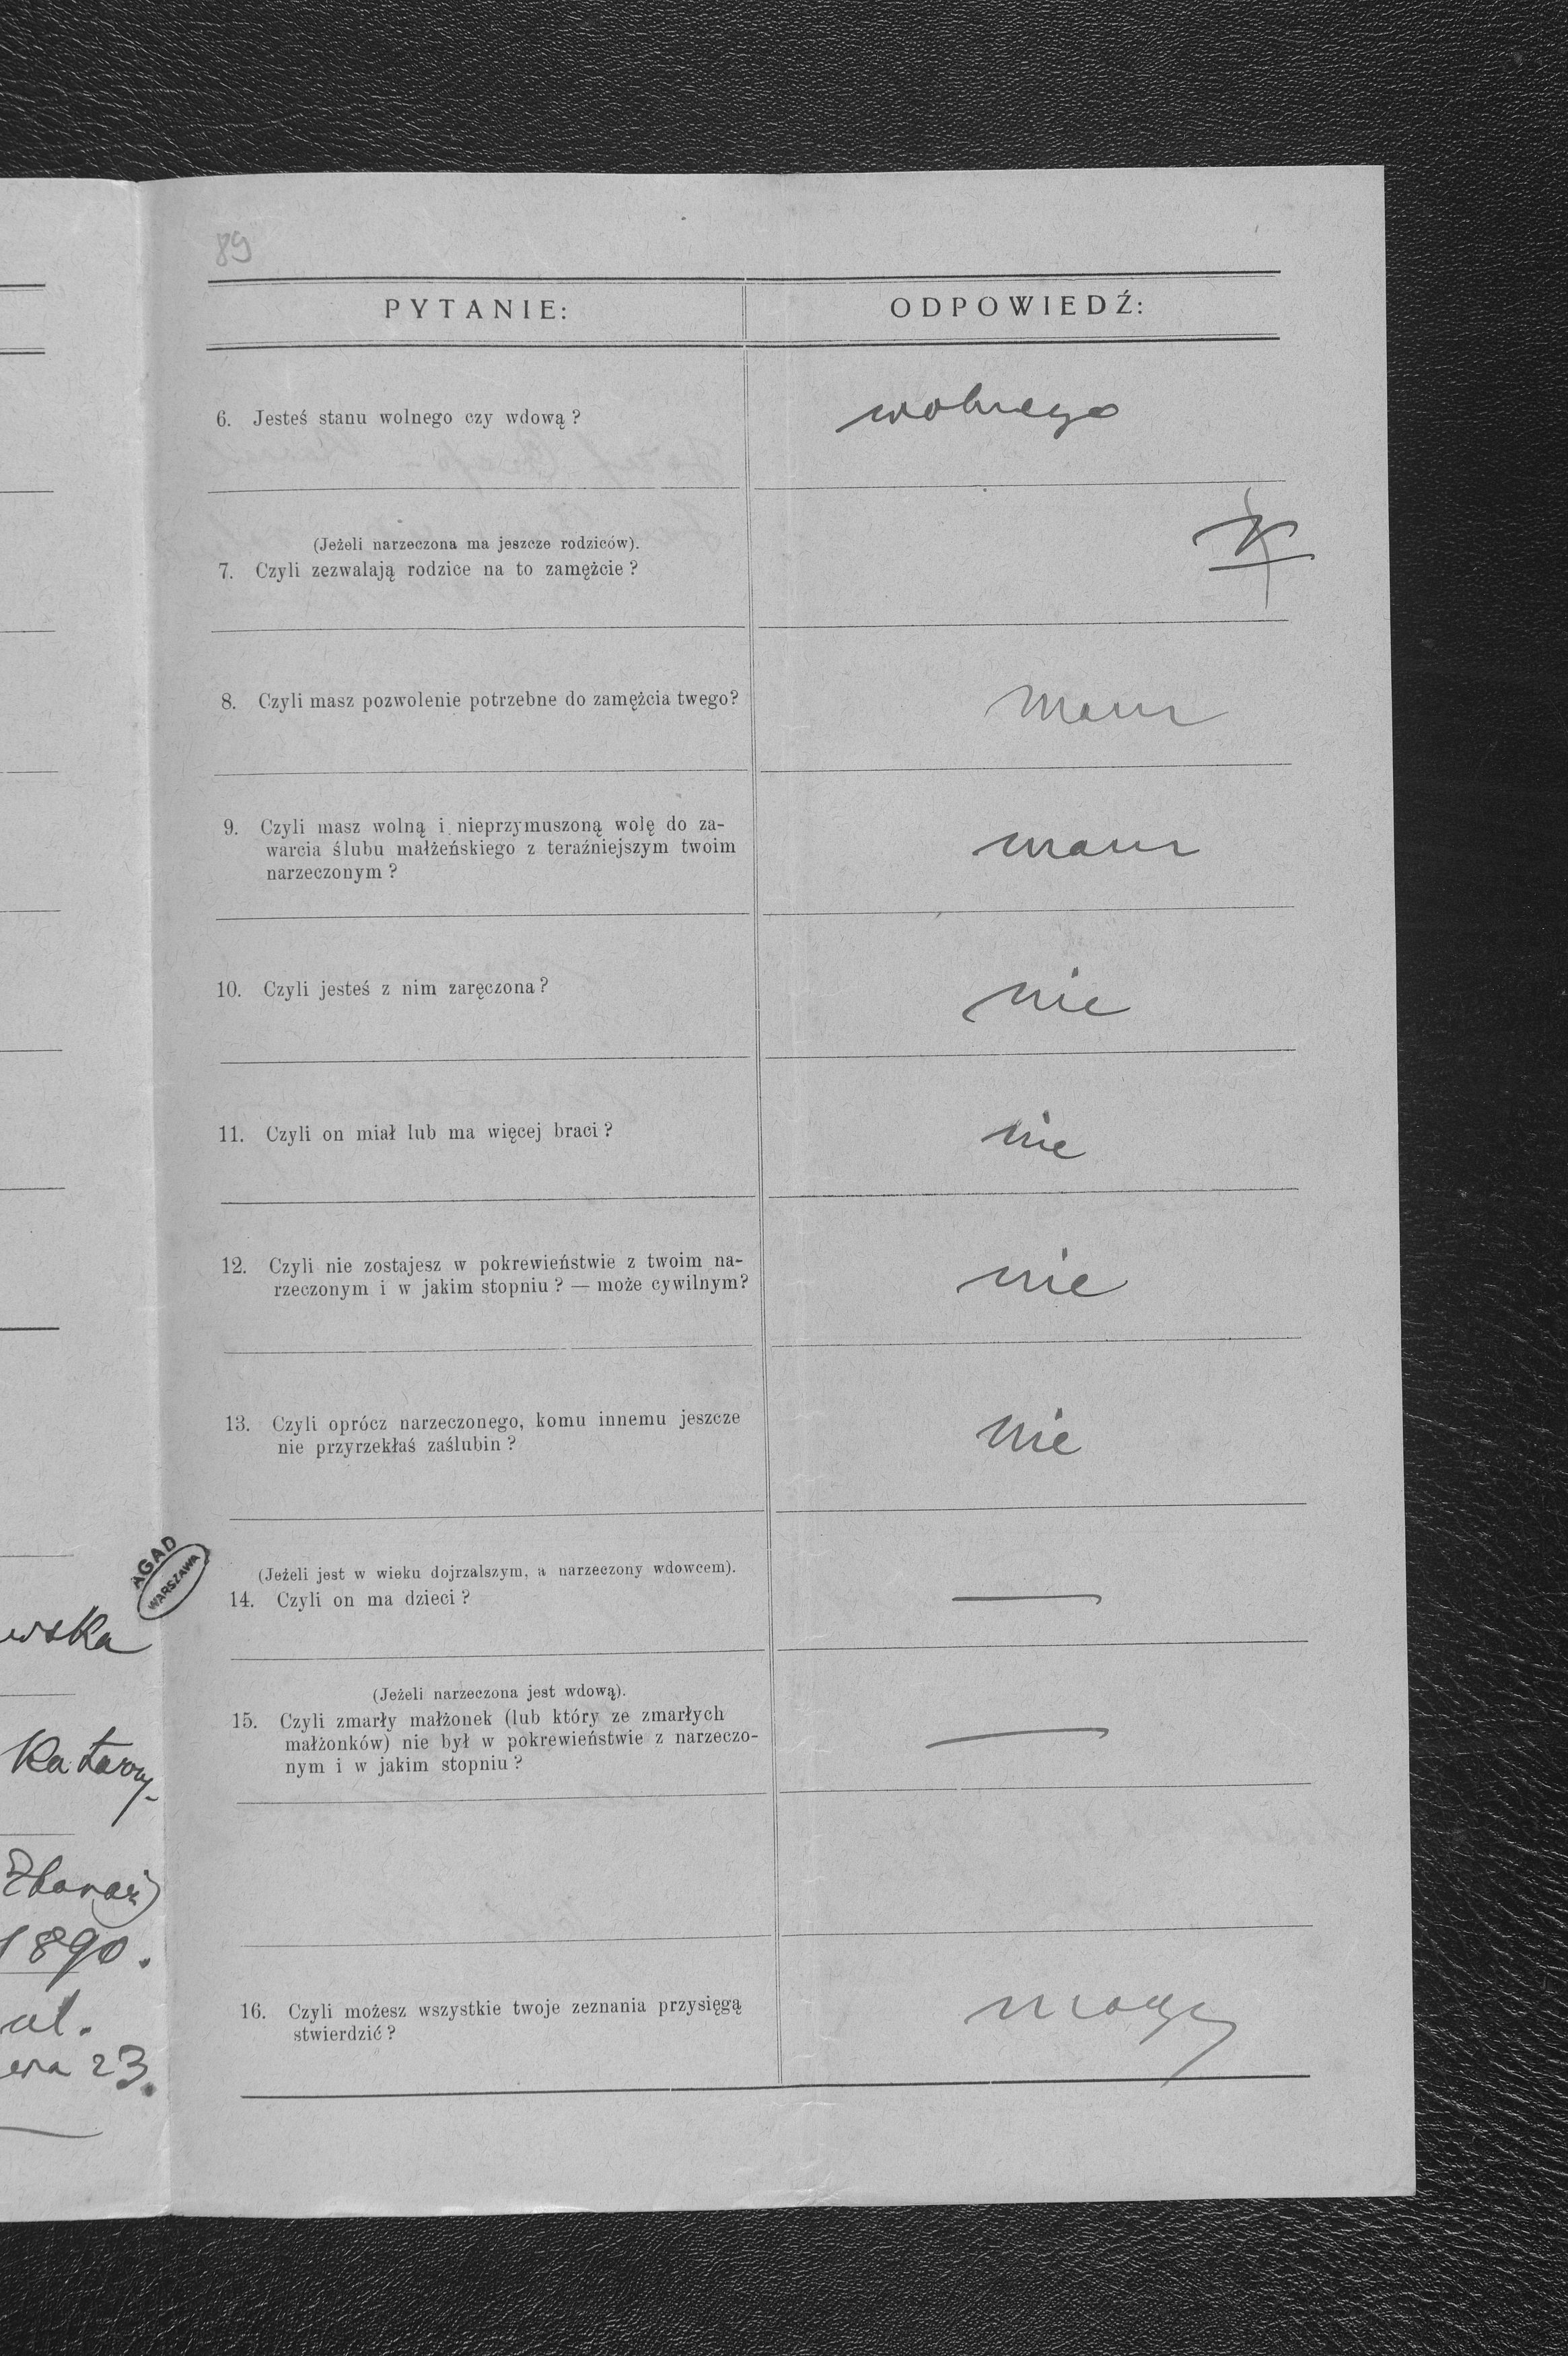 89
PYTANIE:
ODPOWIEDŹ:
6. Jesteś stanu wolnego czy wdową?
wolnego
(Jeżeli narzeczona ma jeszcze rodziców).
7. Czyli zezwalają rodzice na to zamężcie?
8. Czyli masz pozwolenie potrzebne do zamężcia twego?
mam
9. Czyli masz wolną i nieprzymuszoną wolę do za-
warcia ślubu małżeńskiego z teraźniejszym twoim
narzeczonym?
mam
10. Czyli jesteś z nim zaręczona?
nie
11. Czyli on miał lub ma więcej braci?
nie
12. Czyli nie zostajesz w pokrewieństwie z twoim na-
rzeczonym i w jakim stopniu? — może cywilnym?
nie
13. Czyli oprócz narzeczonego, komu innemu jeszcze
nie przyrzekłaś zaślubin?
nie
(Jeżeli jest w wieku dojrzalszym, a narzeczony wdowcem).
14. Czyli on ma dzieci?
—
(Jeżeli narzeczona jest wdową).
15. Czyli zmarły małżonek (lub który ze zmarłych
małżonków) nie był w pokrewieństwie z narzeczo-
nym i w jakim stopniu?
—
16. Czyli możesz wszystkie twoje zeznania przysięgą
stwierdzić?
mogę
AGAD
WARSZAWA
wska
Katarzy-
Zbaraż)
1890.
ul.
23.